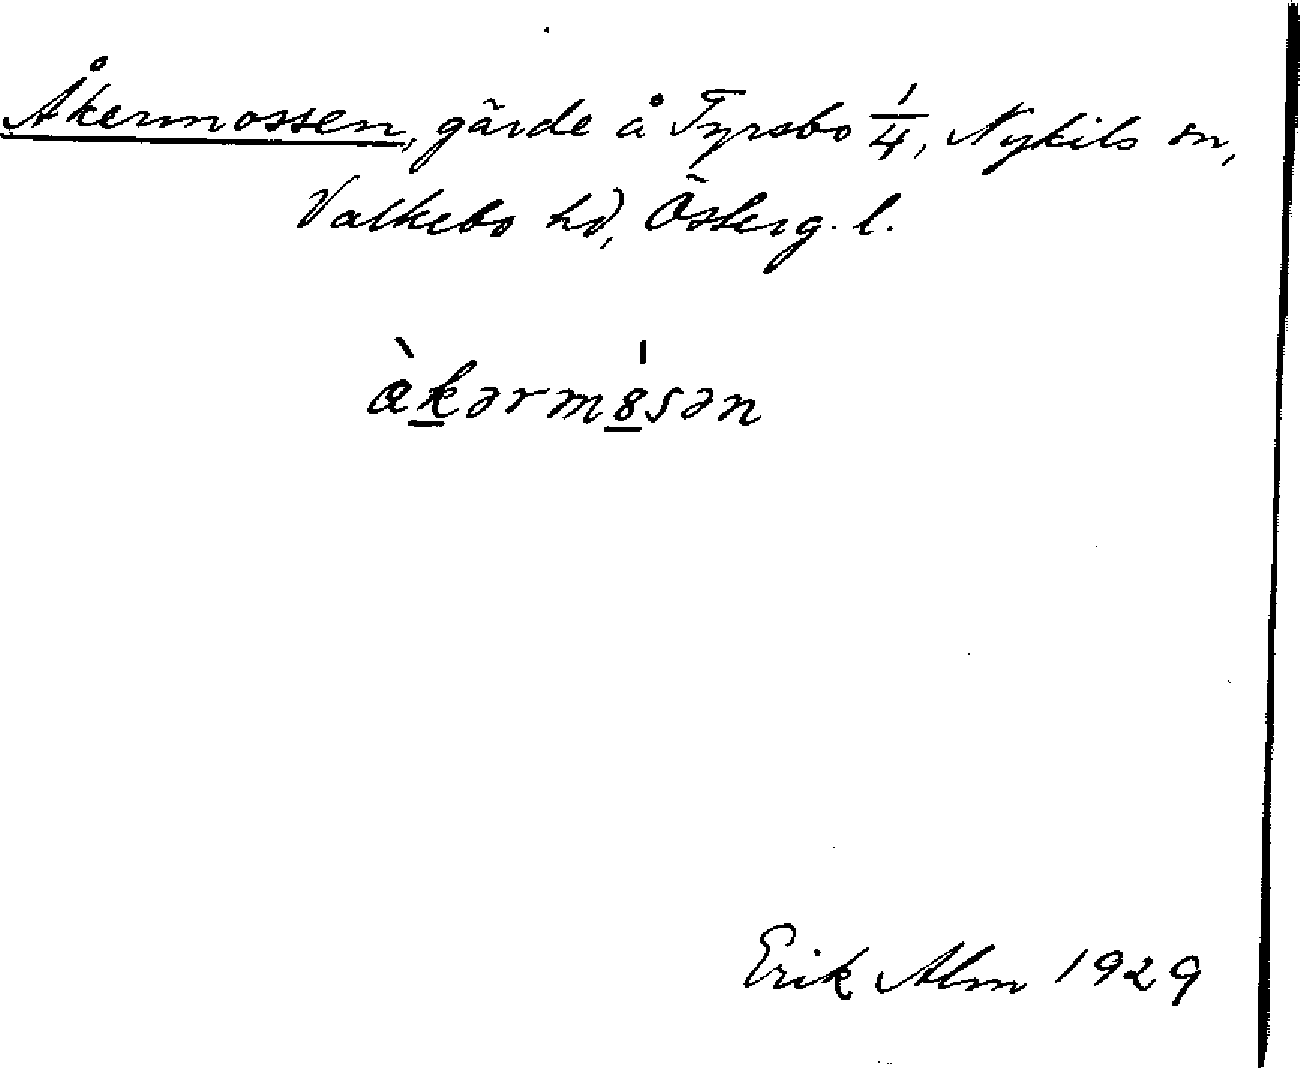 Åkermossen, gärde å Tyrsbo 1/4, Nykils sn,
Valkebo hd, Österg. l.
àkərmɵ́sən
Erik Alm 1929